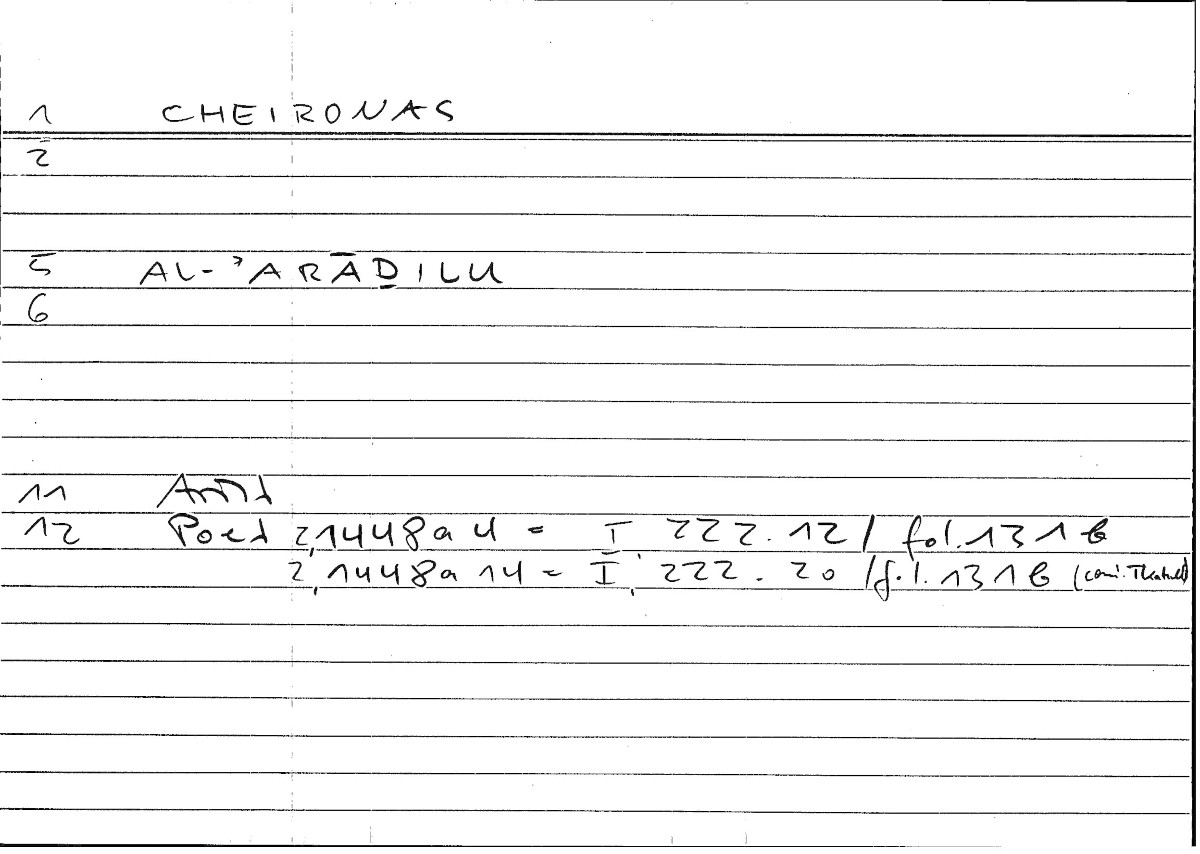 1 CHEIRONAS
2
5 AL-ʾARĀḎILU
6
11 Arist
12 Poet 2,1448a 4 = I, 222.12 / fol. 131b
2,1448a 14 = I, 222.20 / fol. 131b